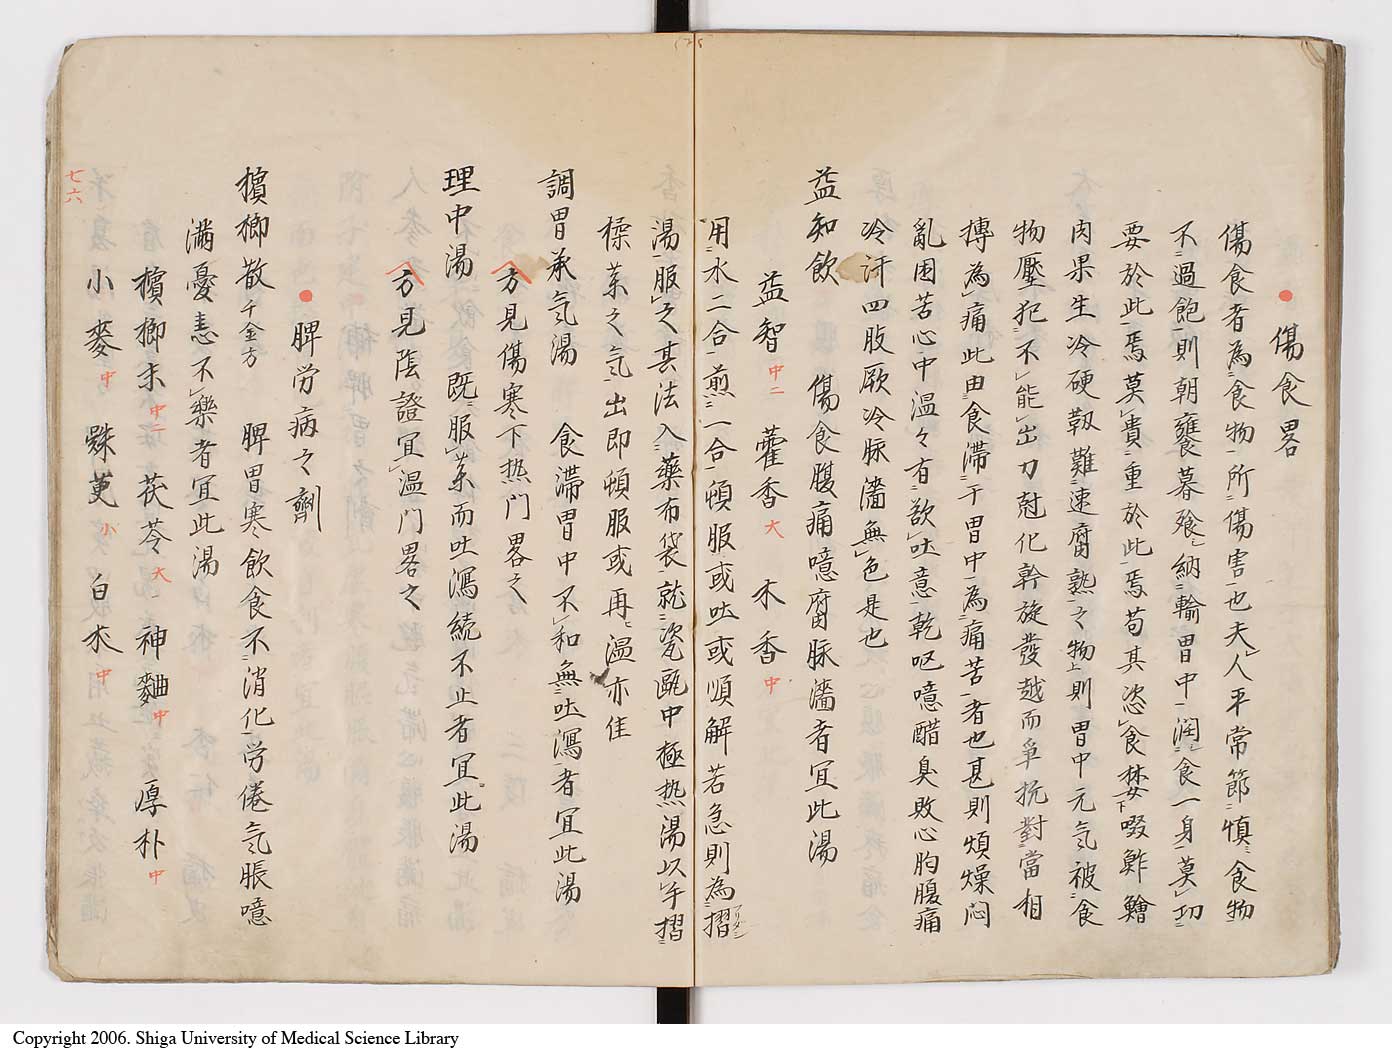 傷食畧
傷食者為食物所傷害也夫人平常節慎食物
不過飽則朝饔暮飱納輸胃中潤食一身莫切
要於此焉莫貴重於此焉苟其恣食婪啜鮓鱠
肉果生冷硬靱難速腐熟之物則胃中元氣被食
物壓犯不能出力尅化幹旋發越而爭抗對當相
搏為痛此由食滞于胃中為痛苦者也甚則煩燥悶
亂困苦心中温々有欲吐意乾呕噫醋臭敗心胸腹痛
冷汗四肢厥冷脉濇無色是也
益知飲 傷食腹痛噫腐脉濇者宜此湯
益智中二 藿香大 木香中
用水二合煎一合頓服或吐或順解若急則為摺
湯服之其法入藥布袋就瓷甌中極热湯以手摺
㩒薬之気出即頓服或再温亦佳
調胃承气湯 食滞胃中不和無吐瀉者宜此湯
方見傷寒下热門畧之
理中湯 既服薬而吐瀉続不止者宜此湯
方見陰證宜温門畧之
脾労病之劑
檳榔散千金方 脾胃寒飲食不消化労倦气脹噫
満憂恚不樂者宜此湯
檳榔末中二 茯苓大 神麯中 厚朴中
小麥中 小 白朮中
七六
Copyright 2006. Shiga University of Medical Science Library